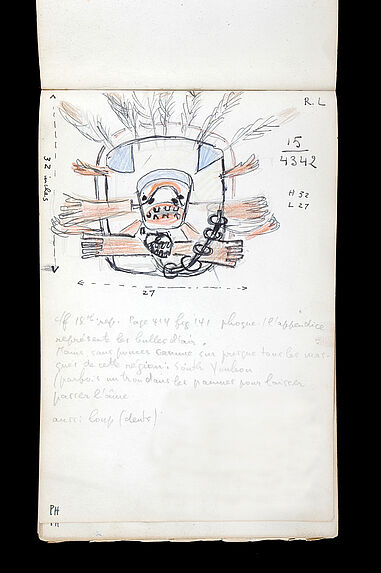 R.L
15
4342
H 32
L 27
32 inches
27
cff 18th rep. Page 414 fig 141 phoque / l'appendice
représente les bulles d'air.
Mains sans pouces comme sur presque tous les mas-
ques de cette région: South Youkon
(parfois un trou dans les paumes pour laisser
passer l'âme
aussi loup (dents)
PH